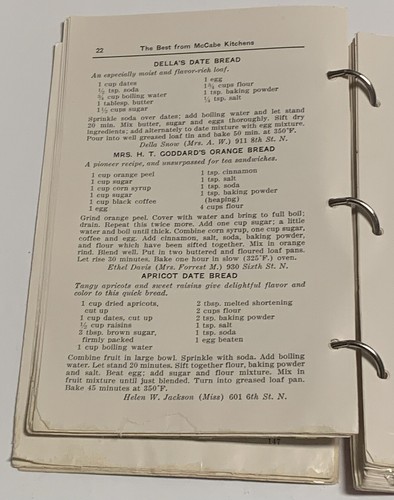 22 The Best from McCabe Kitchens
DELLA'S DATE BREAD
An especially moist and flavor-rich loaf.
1 cup dates 1 egg
½ tsp. soda 1¾ cups flour
¾ cup boiling water 1 tsp. baking powder
1 tablesp. butter ¼ tsp. salt
1½ cups sugar
Sprinkle soda over dates; add boiling water and let stand
20 min. Mix butter, sugar and eggs thoroughly. Sift dry
ingredients; add alternately to date mixture with egg mixture.
Pour into well greased loaf tin and bake 50 min. at 350°F.
Della Snow (Mrs. A. W.) 911 8th St. N.
MRS. H. T. GODDARD'S ORANGE BREAD
A pioneer recipe, and unsurpassed for tea sandwiches.
1 cup orange peel 1 tsp. cinnamon
1 cup sugar 1 tsp. salt
1 cup corn syrup 1 tsp. soda
1 cup sugar 1 tsp. baking powder
1 cup black coffee (heaping)
1 egg 4 cups flour
Grind orange peel. Cover with water and bring to full boil;
drain. Repeat this twice more. Add one cup sugar; a little
water and boil until thick. Combine corn syrup, one cup sugar,
coffee and egg. Add cinnamon, salt, soda, baking powder,
and flour which have been sifted together. Mix in orange
rind. Blend well. Put in two buttered and floured loaf pans.
Let rise 30 minutes. Bake one hour in slow (325°F.) oven.
Ethel Davis (Mrs. Forrest M.) 930 Sixth St. N.
APRICOT DATE BREAD
Tangy apricots and sweet raisins give delightful flavor and
color to this quick bread.
1 cup dried apricots, 2 tbsp. melted shortening
cut up 2 cups flour
1 cup dates, cut up 2 tsp. baking powder
½ cup raisins 1 tsp. salt
3 tbsp. brown sugar, 1 tsp. soda
firmly packed 1 egg beaten
1 cup boiling water
Combine fruit in large bowl. Sprinkle with soda. Add boiling
water. Let stand 20 minutes. Sift together flour, baking powder
and salt. Beat egg; add sugar and flour mixture. Mix in
fruit mixture until just blended. Turn into greased loaf pan.
Bake 45 minutes at 350°F.
Helen W. Jackson (Miss) 601 6th St. N.
147